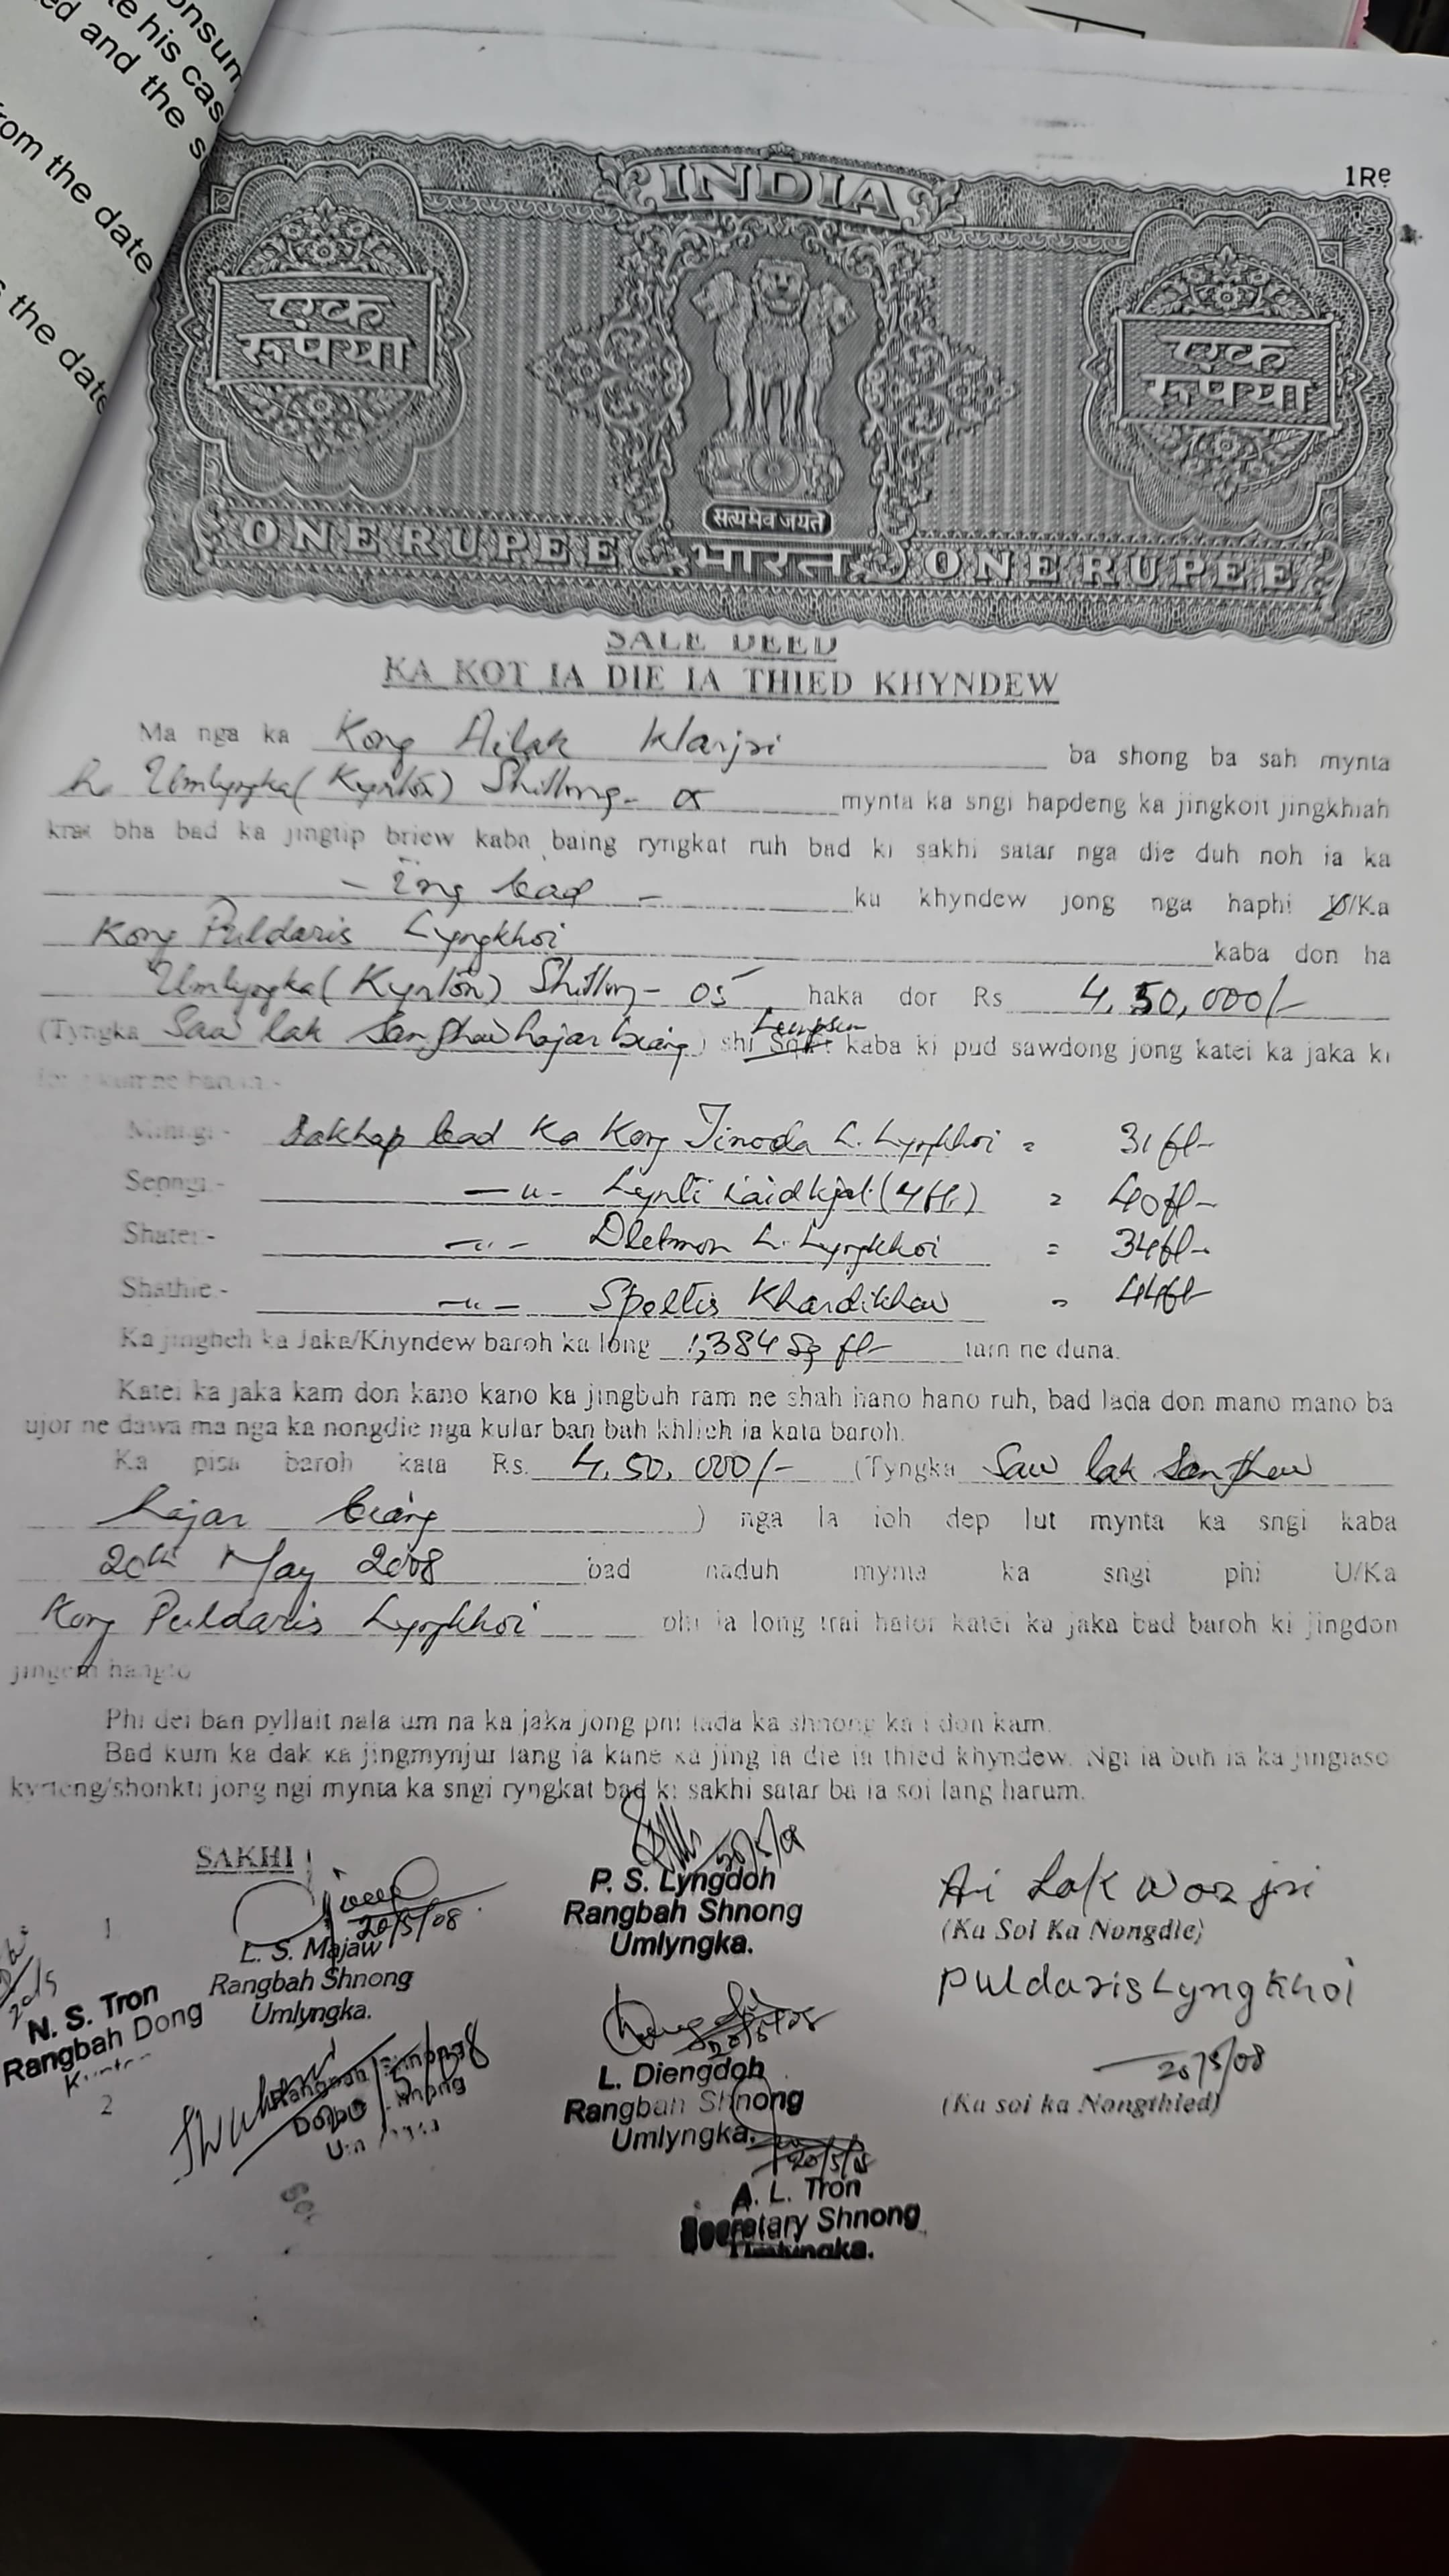 onsum
e his cas
ed and the s
rom the date
s the date
1Re
INDIA
एक
रूपया
एक
रूपया
सत्यमेव जयते
ONE RUPEE भारत ONE RUPEE
SALE DEED
KA KOT IA DIE IA THIED KHYNDEW
Ma nga ka Kong Ailak Warjri ba shong ba sah mynta
Umlyngka (Kynton) Shillong - 05 mynta ka sngi hapdeng ka jingkoit jingkhiah
krat bha bad ka jingtip briew kaba baing ryngkat ruh bad ki sakhi satar nga die duh noh ia ka
- Ing bad - ka khyndew jong nga haphi U/Ka
Kong Puldaris Lyngkhoi kaba don ha
Umlyngka (Kynton) Shillong - 05 haka dor Rs 4,50,000/-
(Tyngka Saw lak Sanphew hajar biang) shi Lumpsum kaba ki pud sawdong jong katei ka jaka ki
Mihngi:- Sakhap bad Ka Kong Tinoda L. Lyngkhoi = 31 ft
Sepngi:- —"— Lynti iaid kjat (4 ft) = 40 ft
Shatei:- —"— L. Lyngkhoi = 34 ft
Shathie:- —"— Speltis Khardikhew = 44 ft
Ka jingheh ka Jaka/Khyndew baroh ka long 1,384 Sq ft tam ne duna.
Katei ka jaka kam don kano kano ka jingbuh ram ne shah hano hano ruh, bad lada don mano mano ba
ujor ne dawa ma nga ka nongdie nga kular ban bah khlieh ia kata baroh.
Ka pisa baroh kata Rs. 4,50,000/- (Tyngka Saw lak Sanphew
hajar biang) nga la ioh dep lut mynta ka sngi kaba
20th May 2008 bad naduh mynta ka sngi phi U/Ka
Kong Puldaris Lyngkhoi phi la long trai halor katei ka jaka bad baroh ki jingdon
hangto
Phi dei ban pyllait nala um na ka jaka jong phi lada ka shnong ka i don kam.
Bad kum ka dak ka jingmynjur lang ia kane ka jing ia die ia thied khyndew. Ngi ia buh ia ka jingiasoi
kyrteng/shonkti jong ngi mynta ka sngi ryngkat bad ki sakhi satar ba ia soi lang harum.
SAKHI
20/5/08
P. S. Lyngdoh
Rangbah Shnong
Umlyngka.
Ai Lak Warjri
(Ka Soi Ka Nongdie)
1
20/5/08
L. S. Majaw
Rangbah Shnong
Umlyngka.
Puldaris Lyngkhoi
20/5/08
(Ka soi ka Nongthied)
20/5
N. S. Tron
Rangbah Dong
20/5/08
L. Diengdoh
Rangbah Shnong
Umlyngka.
2
20/5/08
A. L. Tron
Secretary Shnong
Umlyngka.